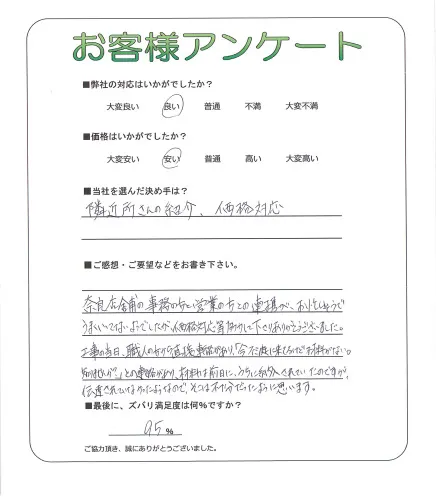 お客様アンケート
■弊社の対応はいかがでしたか？
大変良い 良い 普通 不満 大変不満
■価格はいかがでしたか？
大変安い 安い 普通 高い 大変高い
■当社を選んだ決め手は？
隣近所さんの紹介、価格対応
■ご感想・ご要望などをお書き下さい。
奈良店舗の事務の方と営業の方との連携が、お忙しそうで
うまくいってないようでしたが、価格対応等して下さりありがとうございました。
工事の当日、職人の方から直接電話があり、今から庭に来ているが材料がない。
知りませんか？」との電話があり、材料は前日に、うちに納入されていたのですが、
伝達されていなかったようなので、そこは不十分だったように思います。
■最後に、ズバリ満足度は何％ですか？
95 %
ご協力頂き、誠にありがとうございました。